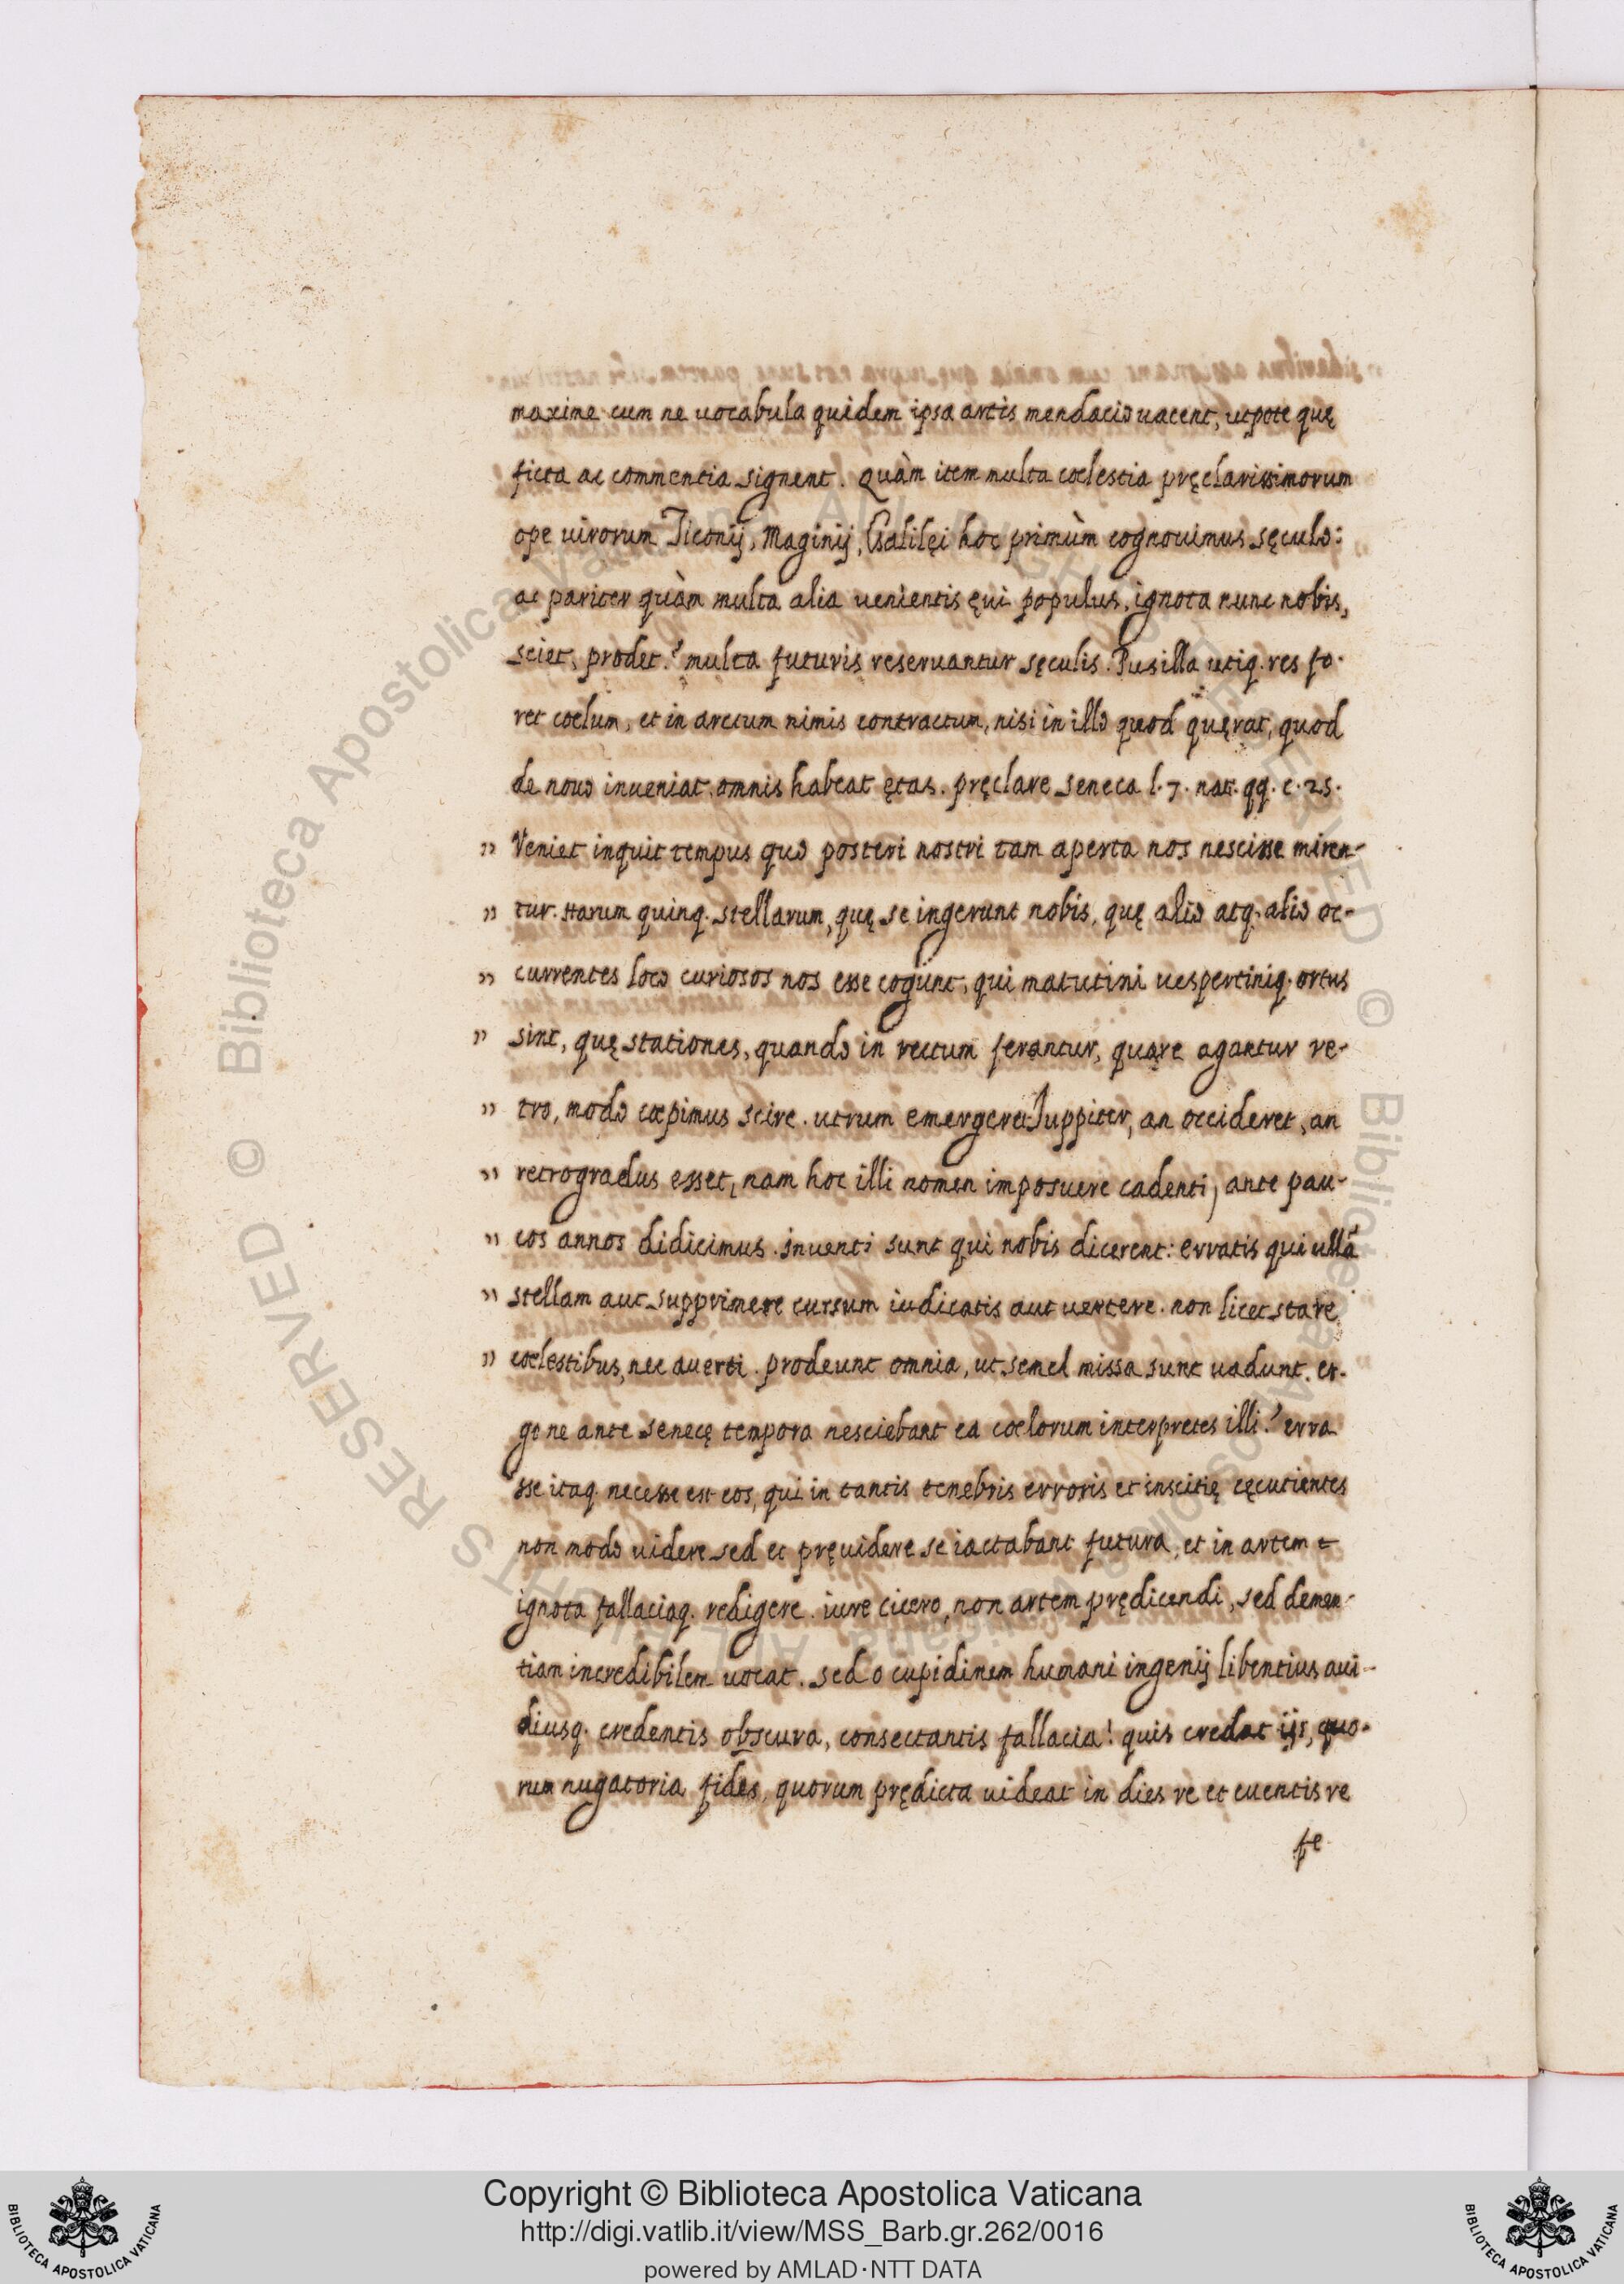 maxime cum ne uocabula quidem ipsa artis mendacio uacent, utpote quę
ficta ac commentia signent. Quàm item multa coelestia pręclarissimorum
ope uirorum Ticonij, Maginij, Galilęi hoc primùm cognouimus sęculo:
ac pariter quàm multa alia uenientis ęui populus, ignota nunc nobis,
sciet, prodet? multa futuris reseruantur sęculis. Pusilla utiq. res fo-
ret coelum, et in arctum nimis contractum, nisi in illo quod quęrat, quod
de nouo inueniat, omnis habeat ętas. pręclare Seneca l. 7. nat. qq. c. 25.
" Veniet inquit tempus quo posteri nostri tam aperta nos nescisse miren-
" tur. Harum quinq. stellarum, quę se ingerunt nobis, quę alio atq. alio oc-
" currentes loco curiosos nos esse cogunt, qui matutini uespertiniq. ortus
" sint, quę stationes, quando in rectum ferantur, quare agantur re-
" tro, modo coepimus scire. utrum emergeret Juppiter, an occideret, an
" retrogradus esset, nam hoc illi nomen imposuere cadenti, ante pau-
" cos annos didicimus. inuenti sunt qui nobis dicerent: erratis qui ullã
" stellam aut supprimere cursum iudicatis aut uertere. non licet stare
" coelestibus, nec auerti. prodeunt omnia, ut semel missa sunt uadunt. er-
go ne ante Senecę tempora nesciebant ea coelorum interpretes illi? erra
sse itaq. necesse est eos, qui in tantis tenebris erroris et inscitię cęcutientes
non modo uidere sed et pręuidere se iactabant futura, et in artem
ignota fallaciaq. redigere. iure Cicero, non artem prędicendi, sed demen-
tiam incredibilem uocat. Sed o cupidinem humani ingenij libentius aui-
diusq. credentis obscura, consectantis fallacia! quis credat ijs, quo-
rum nugatoria fides, quorum prędicta uideat in dies re et euentis re
fe
Copyright © Biblioteca Apostolica Vaticana
http://digi.vatlib.it/view/MSS_Barb.gr.262/0016
powered by AMLAD·NTT DATA
BIBLIOTECA APOSTOLICA VATICANA
BIBLIOTECA APOSTOLICA VATICANA